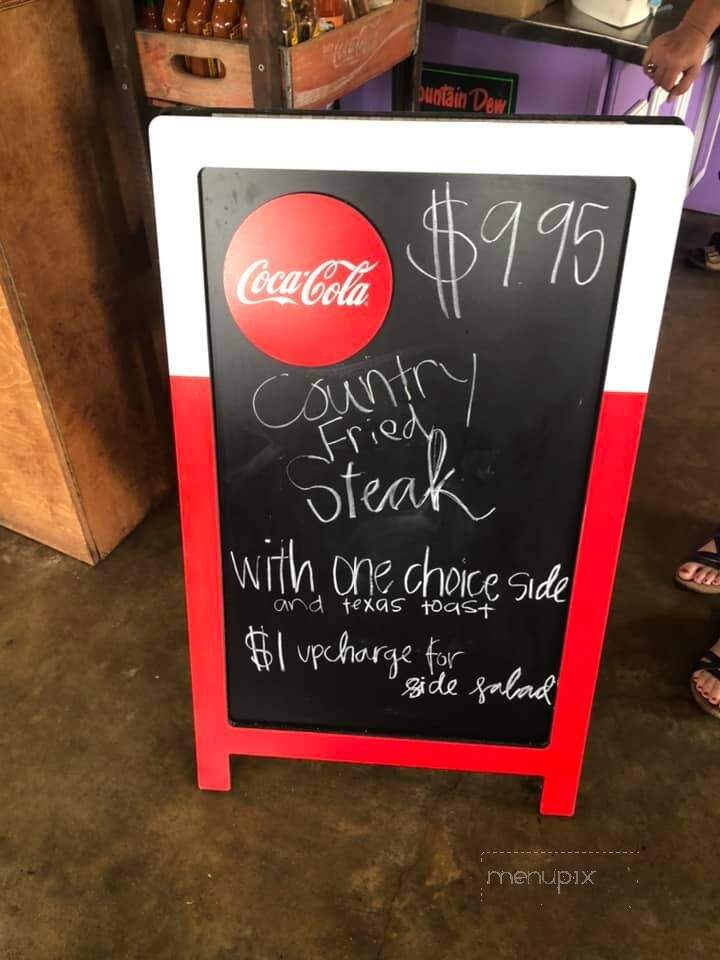 Coca-Cola
Mountain Dew
Coca-Cola
$9.95
Country
Fried
Steak
with one choice side
and texas toast
$1 upcharge for
side salad
menupix